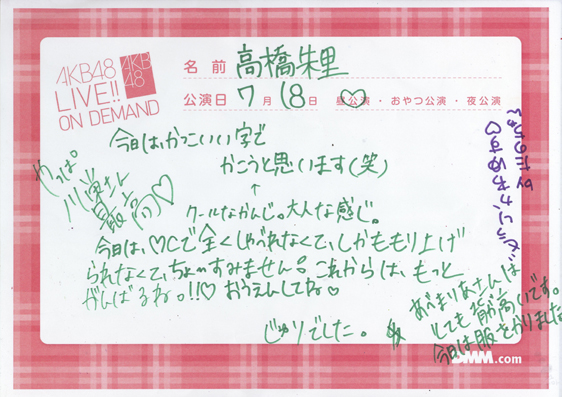 AKB48
LIVE!!
ON DEMAND
AKB
48
名前 高橋朱里
公演日 7月18日 昼公演・おやつ公演・夜公演
今日は、かっこいい字で
かこうと思います(笑)
↑
クールなかんじ。大人な感じ。
今日は、MCで全くしゃべれなくて、しかももり上げ
られなくて、ちょーすみません。これからは、もっと
がんばるね。!!♡ おうえんしてね
じゅりでした。
やっぱ
川栄さん
最高♡
あんまりあさんは
とても背が高いです。
今日は服をかりました
DMM.com